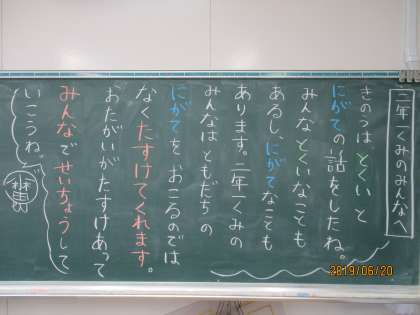 二年一くみのみんなへ
きのうは、とくいと
にがての話をしたね。
みんなとくいなことも
あるし、にがてなことも
あります。二年一くみの
みんなはともだちの
にがてを、おこるのでは
なくたすけてくれます。
おたがいがたすけあって
みんなでせいちょうして
いこうね。
2019/06/20